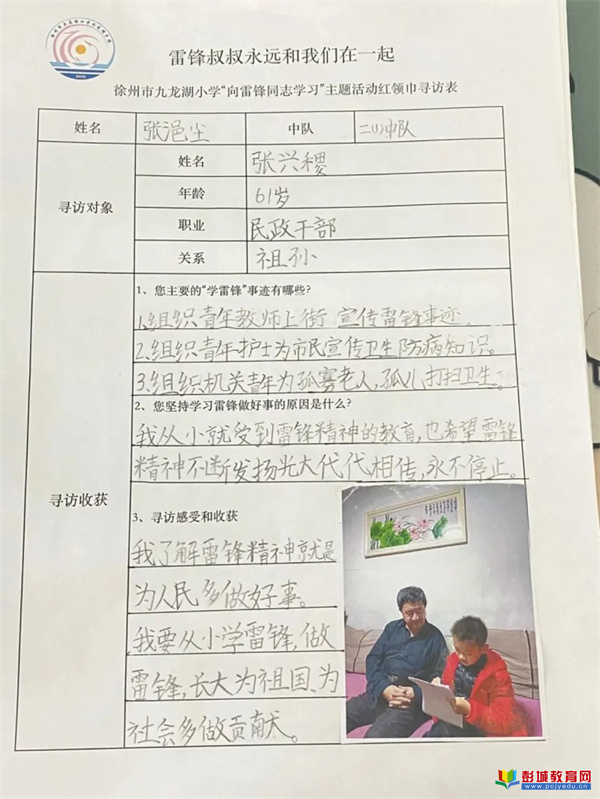 雷锋叔叔永远和我们在一起
徐州市九龙湖小学“向雷锋同志学习”主题活动红领巾寻访表
姓名 张浥尘 中队 二(1)中队
寻访对象
姓名 张兴稷
年龄 61岁
职业 民政干部
关系 祖孙
寻访收获
1、您主要的“学雷锋”事迹有哪些?
1.组织青年教师上街宣传雷锋事迹。
2.组织青年护士为市民宣传卫生防病知识。
3.组织机关青年为孤寡老人,孤儿打扫卫生。
2、您坚持学习雷锋做好事的原因是什么?
我从小就受到雷锋精神的教育,也希望雷锋
精神不断发扬光大代代相传,永不停止。
3、寻访感受和收获
我了解雷锋精神就是
为人民多做好事。
我要从小学雷锋,做
雷锋,长大为祖国、为
社会多做贡献。
彭城教育网
www.pcjyedu.cn